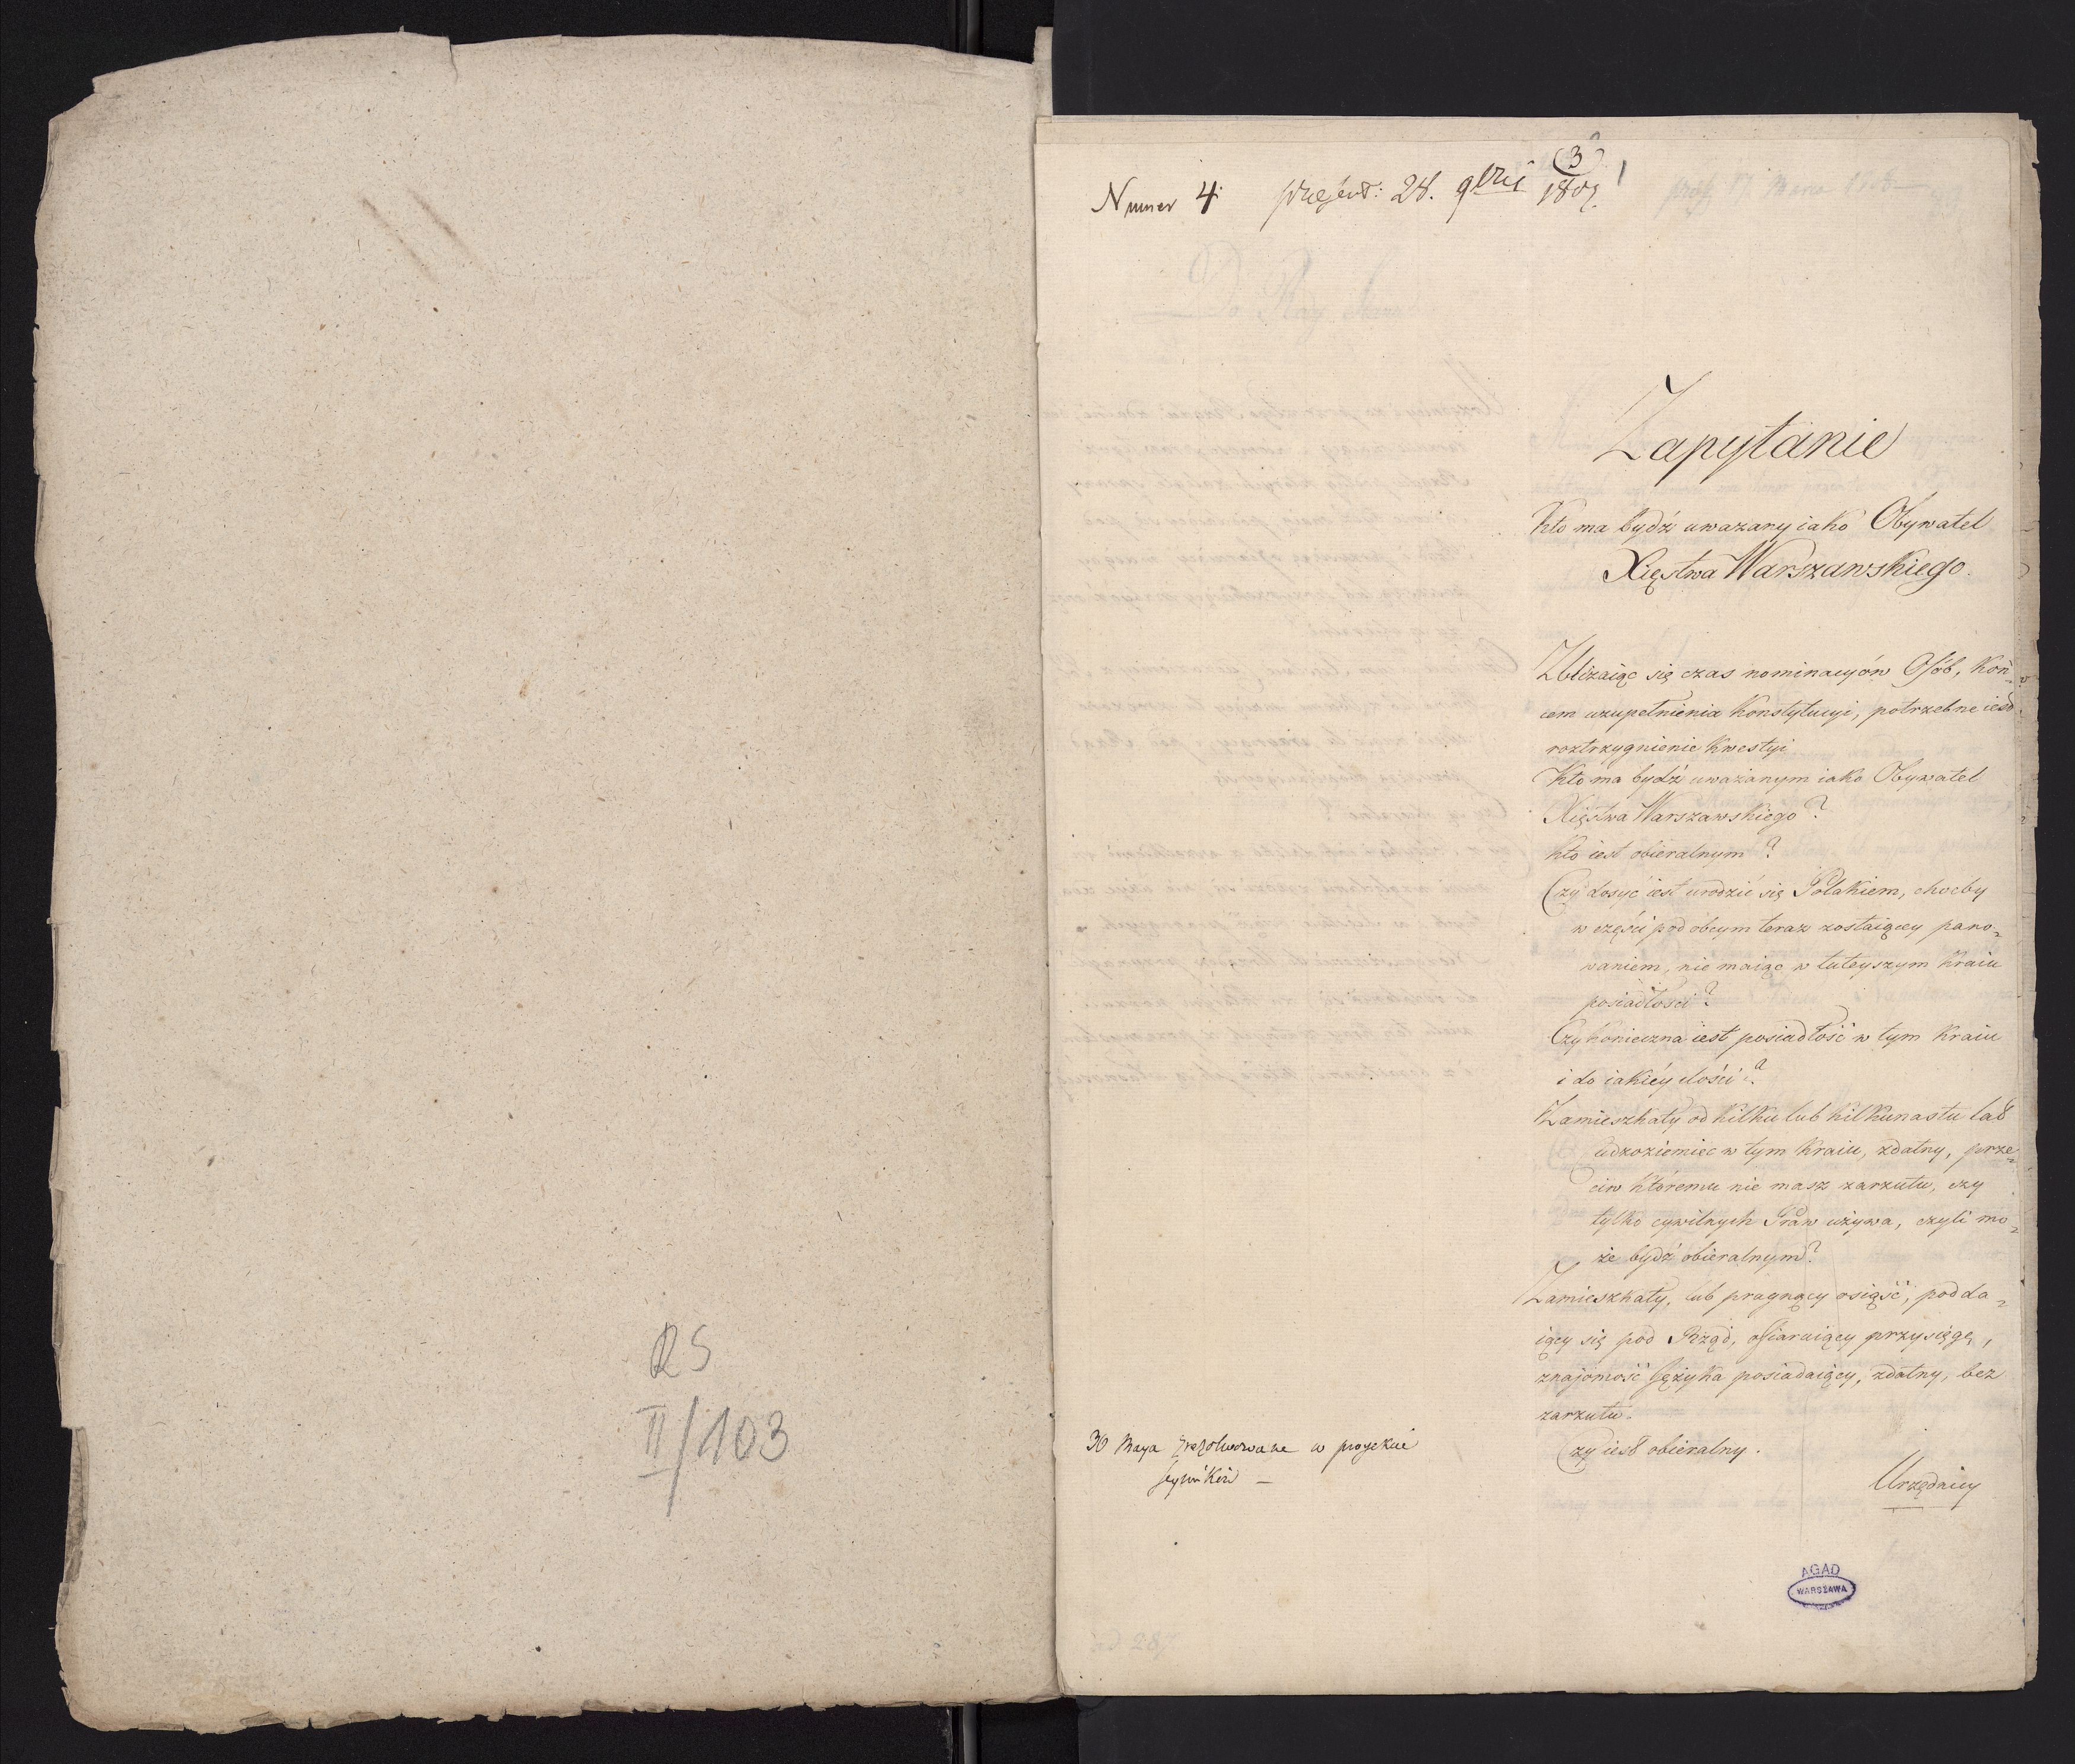 RS
II/103
(3)
Numer 4. prezent: 28. 9bris 1807. 1
Zapytanie
Kto ma bydź uwazany iako Obywatel
Xięstwa Warszawskiego.
Zbliżaiąc się czas nominacyów Osób, koń=
cem uzupełnienia Konstytucyi, potrzebne iest
roztrzygnienie kwestyi
Kto ma bydź uważanym iako Obywatel
Xięstwa Warszawskiego?
Kto iest obieralnym?
Czy dosyć iest urodzić się Polakiem, choćby
w części pod obcym teraz zostaiącey pano=
waniem, nie maiąc w tuteyszym Kraiu
posiadłości?
Czy konieczna iest posiadłość w tym Kraiu
i do iakiéy ilości?
Zamieszkały od kilku lub kilkunastu lat
cudzoziemiec w tym Kraiu, zdatny, prze=
ciw któremu nie masz zarzutu, czy
tylko cywilnych Praw używa, czyli mo=
że bydź obieralnym?
Zamieszkały, lub pragnący osiąść, podda=
iący się pod Rząd, ofiaruiący przysięgę,
znajomość Języka posiadaiący, zdatny, bez
zarzutu.
Czy iest obieralny.
Urzędnicy
30 Maya zrezolwowane w proyekcie
Seymików —
AGAD
WARSZAWA